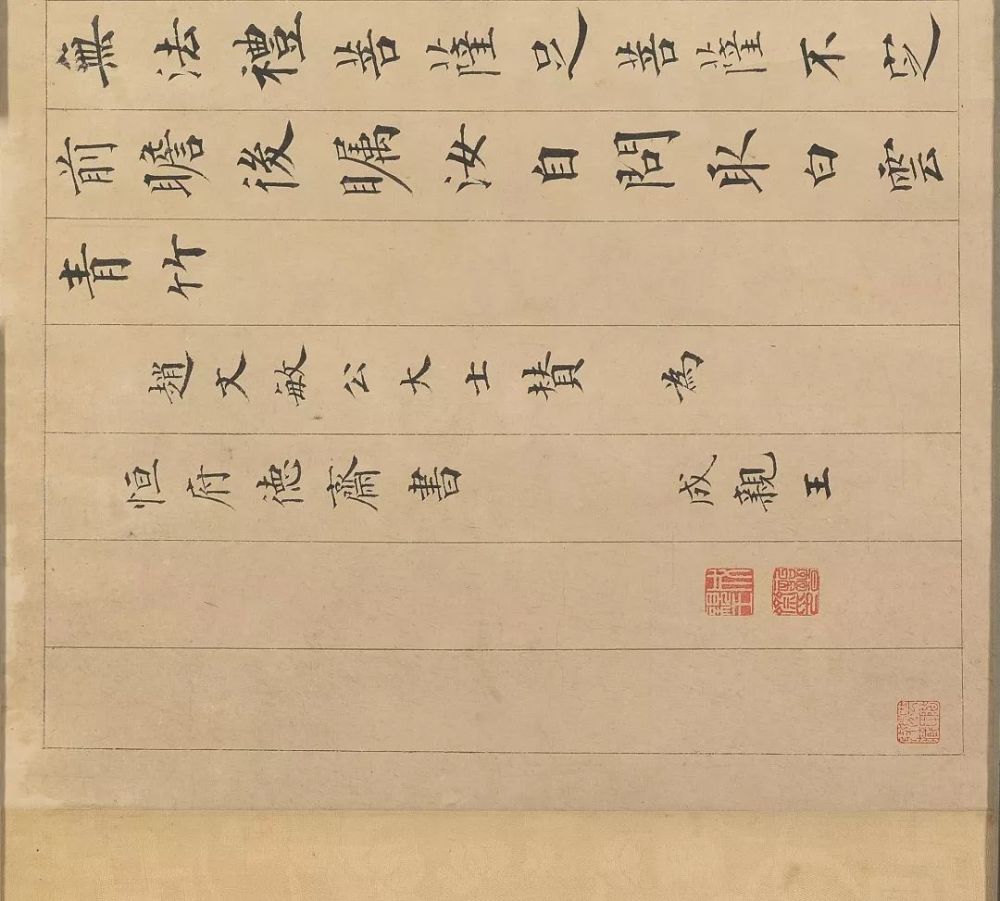 無法禮菩薩足菩薩不
前瞻後矚汝自問取白雲
青竹
趙文敏公大士賛 為
恒府德齋書 成親王